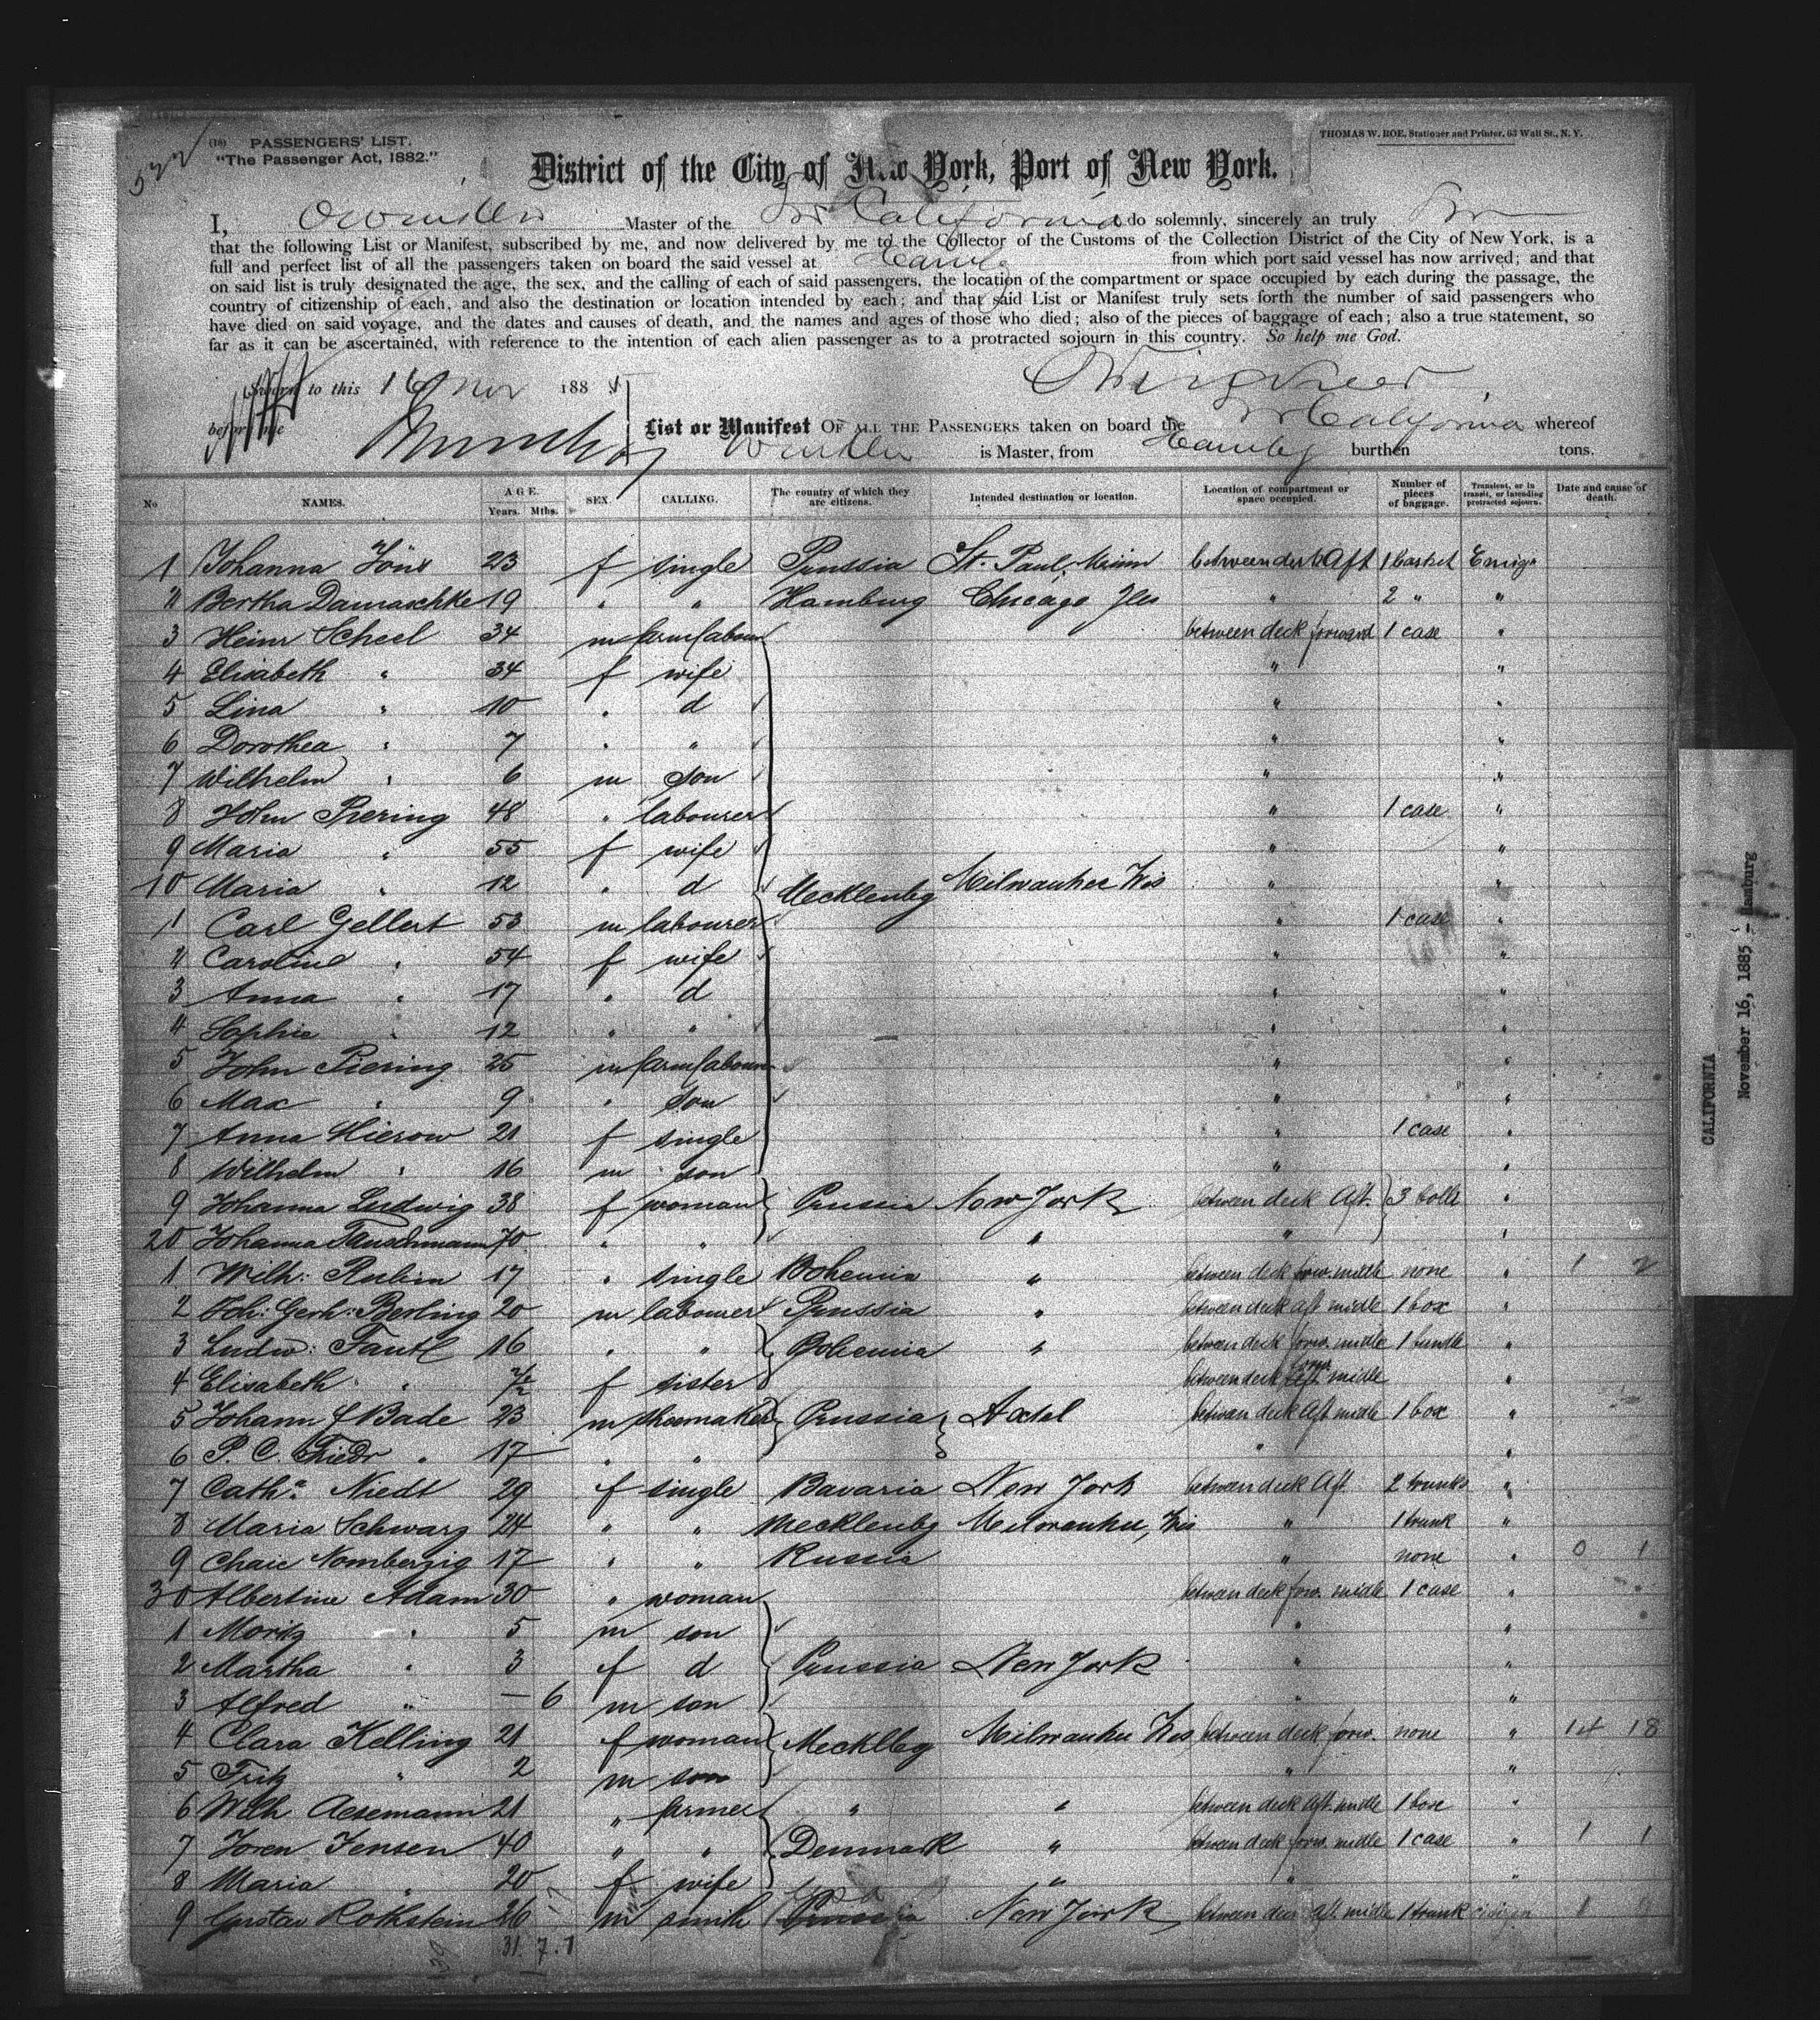 532
(18) PASSENGERS' LIST.
"The Passenger Act, 1882."
THOMAS W. ROE, Stationer and Printer, 63 Wall St., N. Y.
District of the City of New York, Port of New York.
I, Master of the Str California do solemnly, sincerely an truly
that the following List or Manifest, subscribed by me, and now delivered by me to the Collector of the Customs of the Collection District of the City of New York, is a
full and perfect list of all the passengers taken on board the said vessel at Hamburg from which port said vessel has now arrived; and that
on said list is truly designated the age, the sex, and the calling of each of said passengers, the location of the compartment or space occupied by each during the passage, the
country of citizenship of each, and also the destination or location intended by each; and that said List or Manifest truly sets forth the number of said passengers who
have died on said voyage, and the dates and causes of death, and the names and ages of those who died; also of the pieces of baggage of each; also a true statement, so
far as it can be ascertained, with reference to the intention of each alien passenger as to a protracted sojourn in this country. So help me God.
Sworn to this 16 Nov 1885
before me
List or Manifest OF ALL THE PASSENGERS taken on board the Str California whereof
Winckler is Master, from Hamburg burthen tons.
No NAMES. AGE. Years. Mths. SEX. CALLING. The country of which they are citizens. Intended destination or location. Location of compartment or space occupied. Number of pieces of baggage. Transient, or in transit, or intending protracted sojourn. Date and cause of death.
1 Johanna Jöns 23 f single Prussia St. Paul, Minn between deck Aft 1 basket Emigr
2 Bertha Damaschke 19 " " Hamburg Chicago Ills " 2 " "
3 Heinr Scheel 34 m farmlabour between deck forward 1 case "
4 Elisabeth " 34 f wife " "
5 Lina " 10 " d " "
6 Dorothea " 7 " " " "
7 Wilhelm " 6 m son " "
8 John Piering 48 " labourer " 1 case "
9 Maria " 55 f wife " "
10 Maria " 12 " d Mecklenbg Milwaukee Wis " "
1 Carl Gellert 53 m labourer " 1 case "
2 Caroline " 54 f wife " "
3 Anna " 17 " d " "
4 Sophie " 12 " " " "
5 John Piering 25 m farmlabour " "
6 Max " 9 " son " "
7 Anna Hierow 21 f single " 1 case "
8 Wilhelm " 16 m son " "
9 Johanna Ludwig 38 f woman Prussia New York between deck Aft. 3 "
20 Johanna 70 " " " " "
1 Wilh: Rubin 17 " single Bohemia " between deck forw. midle none " 1 2
2 Joh: Gerh: Berling 20 m labourer Prussia " between deck aft midle 1 box "
3 Ludw: Fantl 16 " " Bohemia " between deck forw. midle 1 bundle "
4 Elisabeth " f sister between deck forw midle "
5 Johann f Bade 23 m shoemaker Prussia Axtel between deck aft midle 1 box "
6 P. C. Friedr " 17 " " " "
7 Cath: Niedt 29 f single Bavaria New York between deck Aft 2 trunks "
8 Maria Schwarz 24 " " Mecklenbg Milwaukee, Wis " 1 trunk "
9 Chaie Nomberzig 17 " " Russia " none " 0 1
30 Albertine Adam 30 " woman between deck forw. midle 1 case "
1 Moritz " 5 m son " "
2 Martha " 3 f d Prussia New York " "
3 Alfred " — 6 m son " "
4 Clara Kelling 21 f woman Mecklbg Milwaukee Wis between deck forw. none " 1st 18
5 Fritz " 2 m son " "
6 Wilh Aesemann 21 " farmer " " between deck aft. midle 1 box "
7 Joren Jensen 40 " " Denmark " between deck forw. midle 1 case " 1 1
8 Maria " 20 f wife " " "
9 Gustav Rothstein 26 m smith Prussia New York between deck aft. midle 1 trunk citizen 1
31. 7. 1
CALIFORNIA
November 16, 1885 - Hamburg